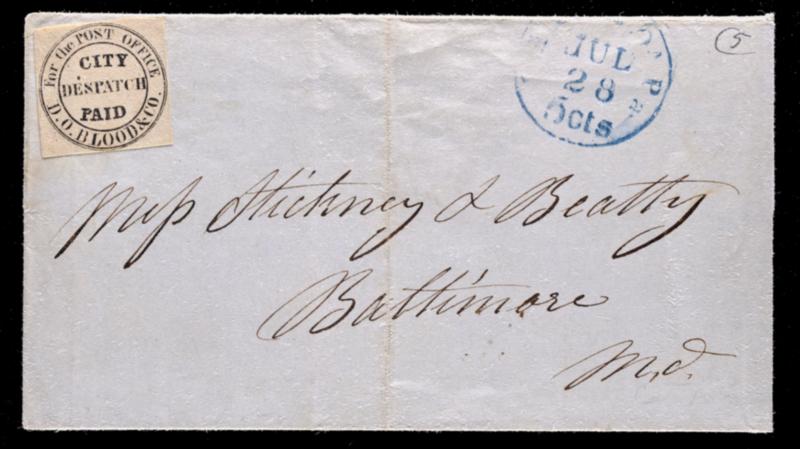 For the POST OFFICE
CITY
DESPATCH
PAID
D.O.BLOOD&CO.
Pa
JUL
28
5cts
5
Mess Stickney & Beatty
Baltimore
Md.